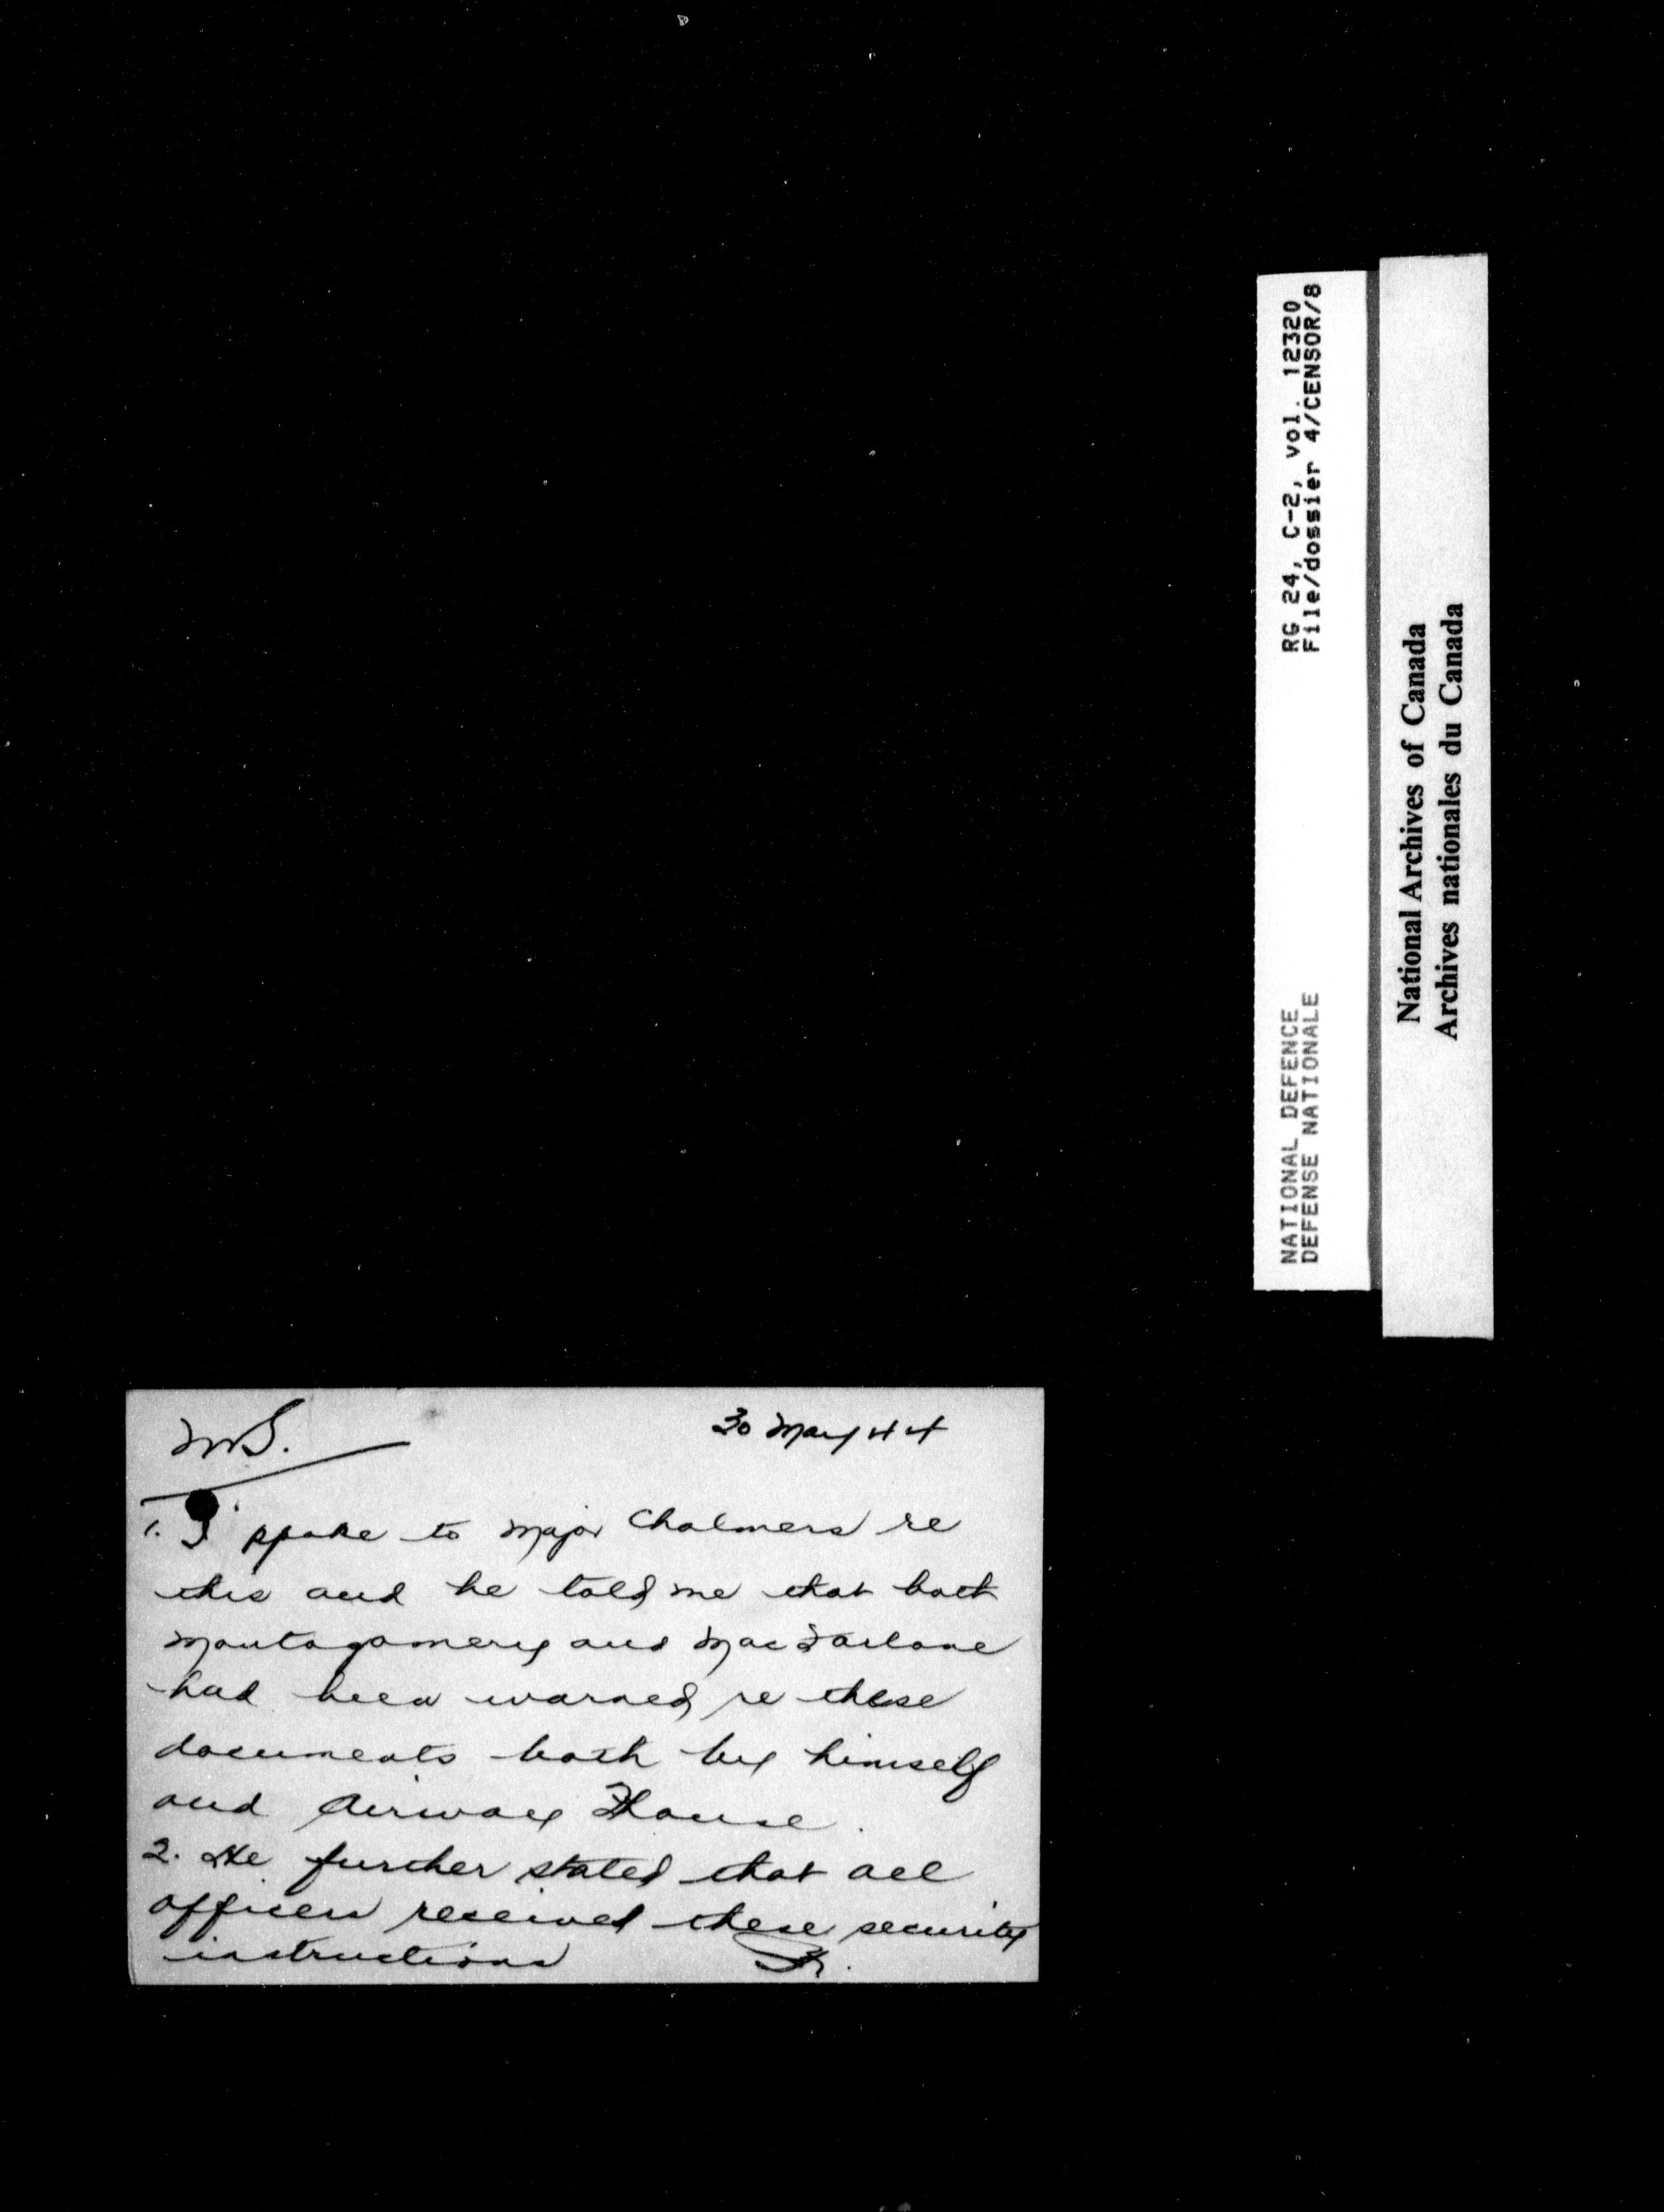 RG 24, C-2, vol. 12320
File/dossier 4/CENSOR/8
NATIONAL DEFENCE
DEFENSE NATIONALE
National Archives of Canada
Archives nationales du Canada
30 May 44
1. I spoke to Major Chalmers re
this and he told me that both
Montagomery and MacFarlane
had been warned re these
documents both by himself
and Airway House.
2. He further stated that all
officers received these security
instructions